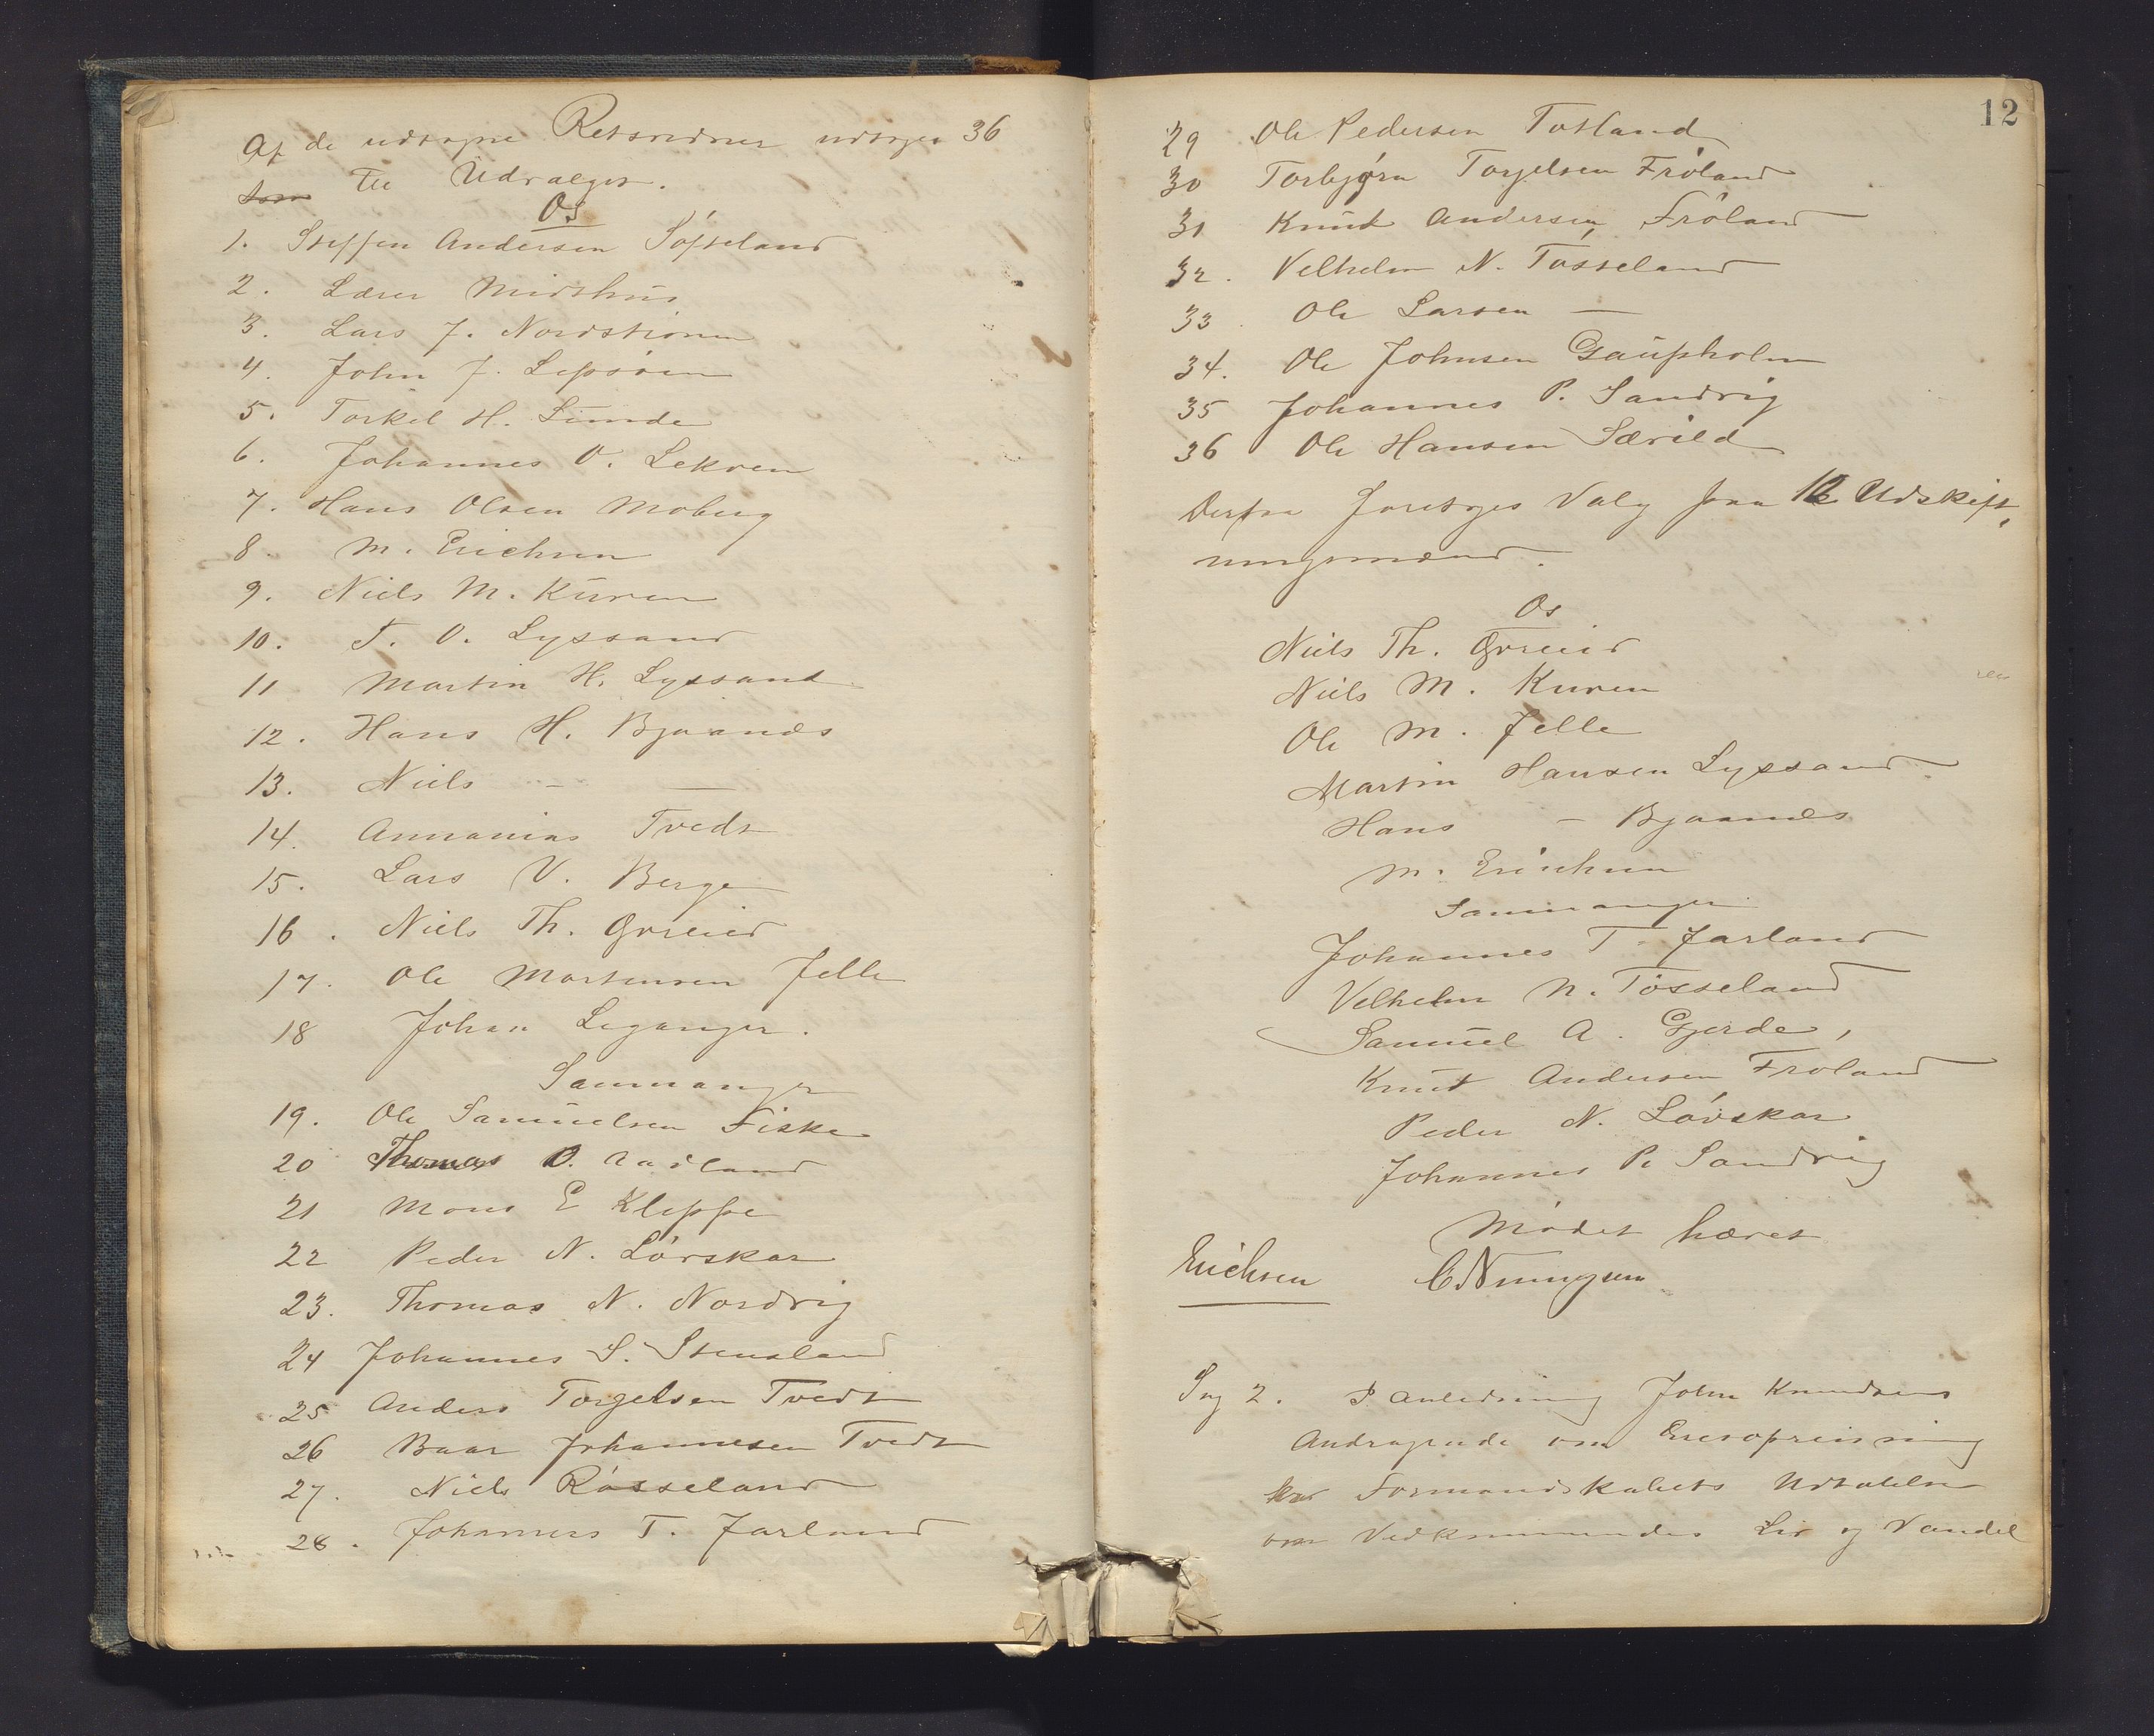 Af de udtagne Retsvidner udtages 36
som til Udvalget.
Os
1. Steffen Andersen Søfteland
2. Lærer Midthus
3. Lars J. Nordstrønen
4. John J. Lepsøen
5. Torkel H. Lunde
6. Johannes O. Lekven
7. Hans Olsen Moberg
8. M. Erichsen
9. Niels M. Kuven
10. T. O. Lyssand
11 Martin H. Lyssand
12. Hans H. Bjaanæs
13. Niels - —
14. Annanias Tvedt
15. Lars V. Berge
16. Niels Th. Gjøneid
17. Ole Mortensen Jelle
18 Johan Leganger.
Sammanger
19. Ole Samuelsen Fiske
20 Thomas O. Aadland
21 Mons E Kleppe
22 Peder N. Løvskar
23. Thomas N. Nordvig
24 Johannes S. Stensland
25 Anders Torgelsen Tvedt
26 Baar Johannesen Tvedt
27. Niels Røsseland
28. Johannes T. Jarland
12
29 Ole Pedersen Tofland
30 Torbjørn Torgelsen Frøland
31 Knut Andersen Frøland
32. Velhelm N. Tøsseland
33 Ole Larsen —
34. Ole Johnsen Gaupholm
35 Johannes P. Sandvig
36 Ole Hansen Særild
Derfra foretoges Valg paa 12 Udskift,
ningsmænd.
Os
Niels Th. Gjøneid
Niels M. Kuven
Ole M. Jelle
Martin Hansen Lyssand
Hans - Bjaanæs
M. Erichsen
Sammanger
Johannes T. Jarland
Velhelm N. Tøsseland
Samuel A. Gjerde,
Knut Andersen Frøland
Peder N. Løvskar
Johannes P. Sandvig
Mødet hævet
Erichsen
Sag 2. I Anledning John Knudsens
Andragende om Æresopreisning
Formandskabets Udtalelse
om Vedkommendes Liv og Vandel